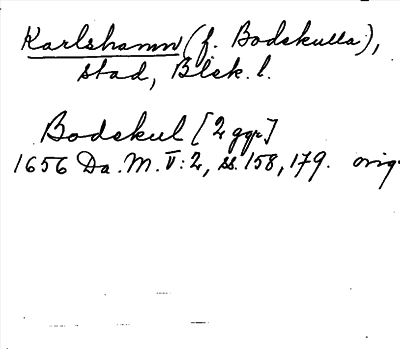 Karlshamn (f. Bodekulla),
stad, Blek. l.
Bodekul [2 ggr]
1656 Da. M. V: 2, ss. 158, 179. orig.